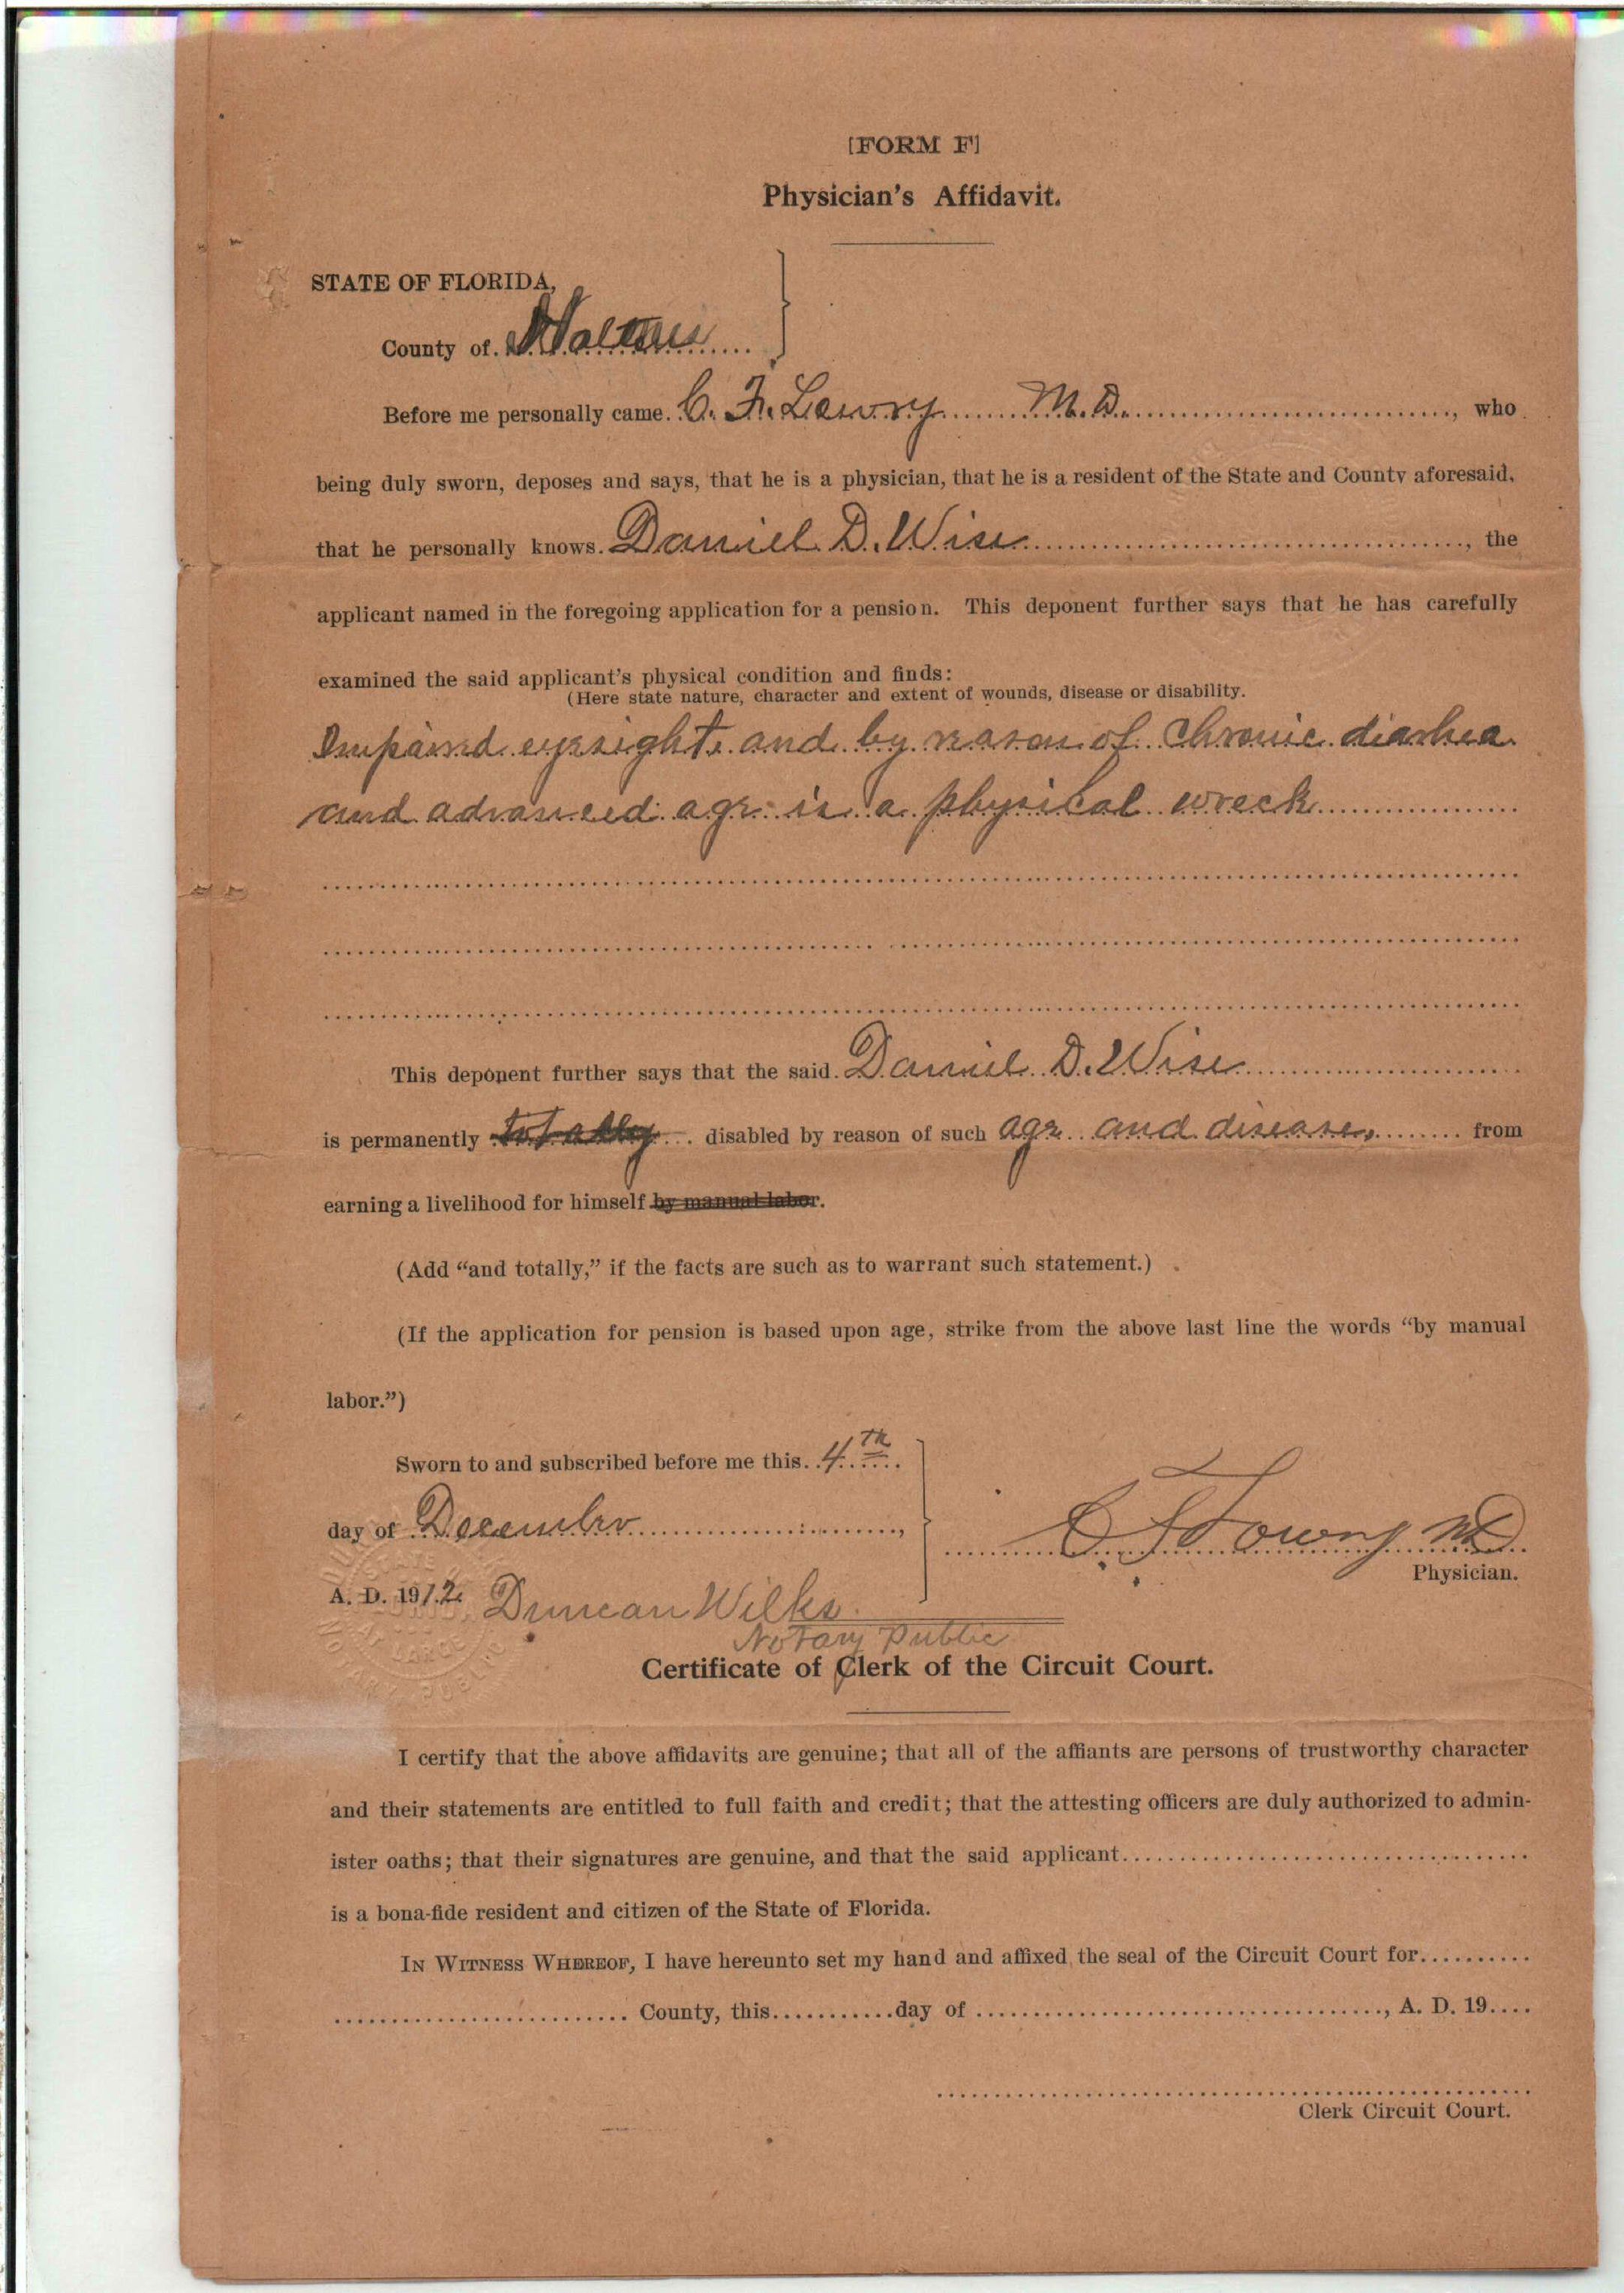 [FORM F]
Physician's Affidavit.
STATE OF FLORIDA,
County of Walton
Before me personally came C. F. Lowry M.D., who
being duly sworn, deposes and says, that he is a physician, that he is a resident of the State and County aforesaid,
that he personally knows Daniel D. Wise, the
applicant named in the foregoing application for a pension. This deponent further says that he has carefully
examined the said applicant's physical condition and finds:
(Here state nature, character and extent of wounds, disease or disability.
Impaired eyesight and by reason of chronic diarhea
and advanced age is a physical wreck
This deponent further says that the said Daniel D. Wise
is permanently totally disabled by reason of such age and disease, from
earning a livelihood for himself by manual labor.
(Add “and totally,” if the facts are such as to warrant such statement.)
(If the application for pension is based upon age, strike from the above last line the words “by manual
labor.”)
Sworn to and subscribed before me this 4th
day of December,
A. D. 1912
C F Lowry MD
Physician.
Duncan Wilks
Notary Public
Certificate of Clerk of the Circuit Court.
I certify that the above affidavits are genuine; that all of the affiants are persons of trustworthy character
and their statements are entitled to full faith and credit; that the attesting officers are duly authorized to admin-
ister oaths; that their signatures are genuine, and that the said applicant
is a bona-fide resident and citizen of the State of Florida.
IN WITNESS WHEREOF, I have hereunto set my hand and affixed the seal of the Circuit Court for
County, this day of , A. D. 19
Clerk Circuit Court.